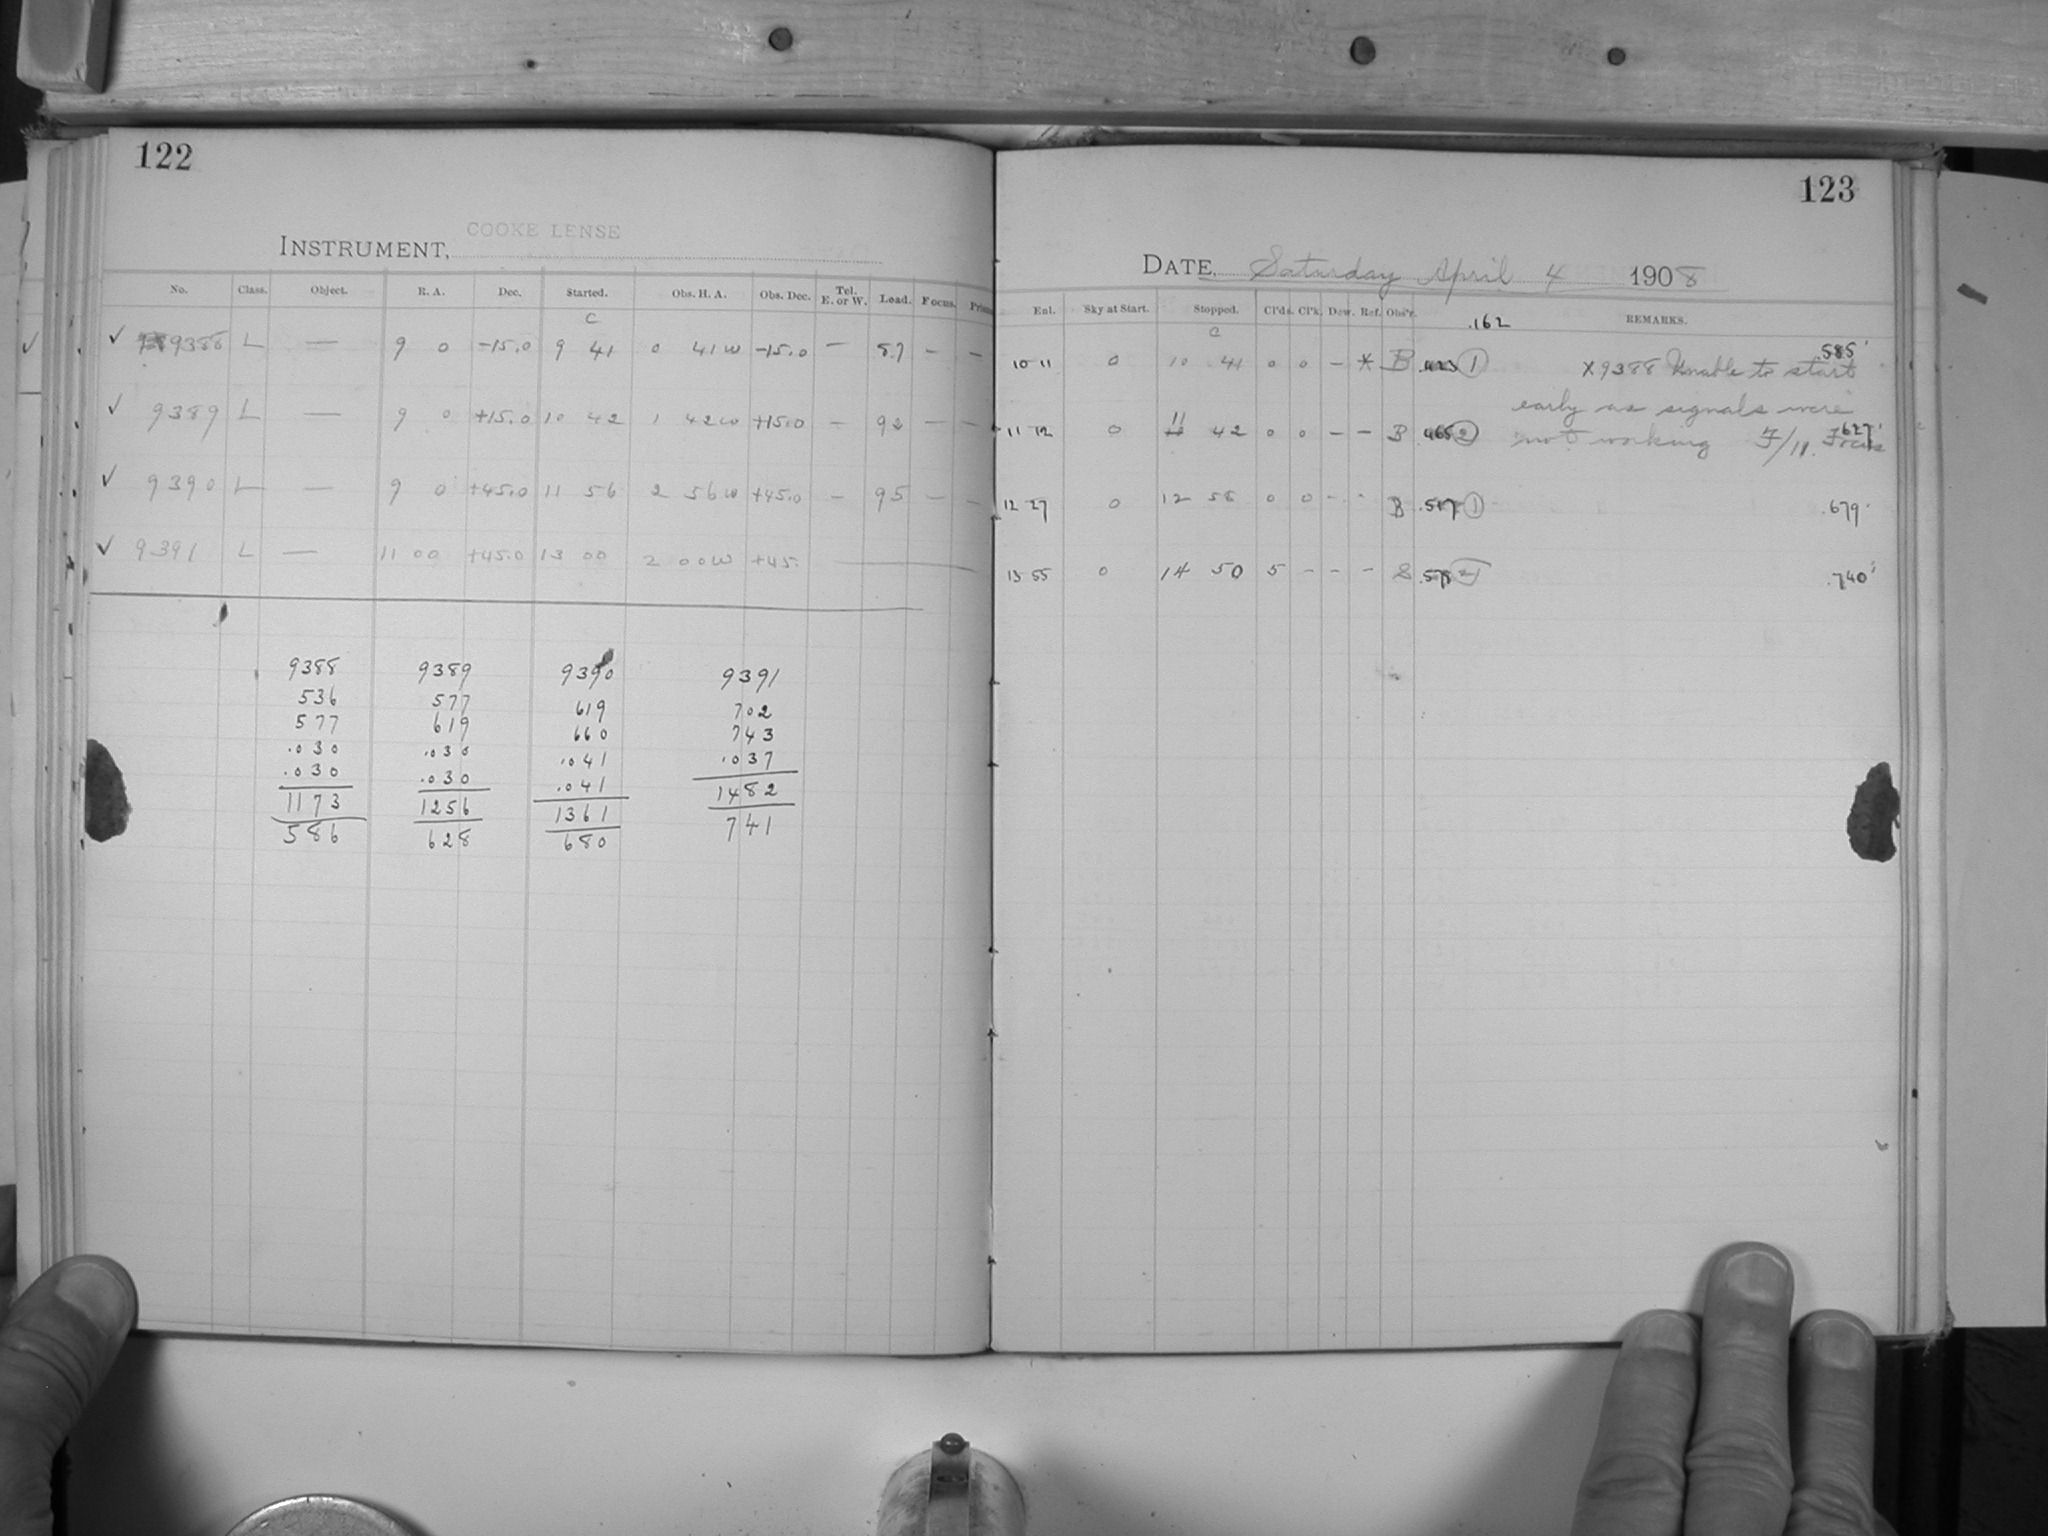 122
COOKE LENSE
INSTRUMENT,
No. Class. Object. R. A. Dec. Started. Obs. H. A. Obs. Dec. Tel. E. or W. Load. Focus.
C
✓ 9388 L — 9 0 -15.0 9 41 0 41 W -15.0 — 87 — —
✓ 9389 L — 9 0 +15.0 10 42 1 42 W +15.0 — 92 — —
✓ 9390 L — 9 0 +45.0 11 56 2 56 W +45.0 — 95 — —
✓ 9391 L — 11 00 +45.0 13 00 2 00 W +45.
9388 9389 9390 9391
536 577 619 702
577 619 660 743
.030 .030 .041 .037
.030 .030 .041 1482
1173 1256 1361 741
586 628 680
123
DATE, Saturday April 4 1908
Enl. Sky at Start. Stopped. Cl'ds. Cl'k. Dew. Ref. Obs'r. REMARKS.
.162
C
10 11 0 10 41 0 0 — * B ① .585
x9388 Unable to start
early as signals were
11 12 0 11 42 0 0 — — B .465 ② not working F/11. Focus .627
12 27 0 12 58 0 0 - - B .517 ① .679
13 55 0 14 50 5 - - - S .578 2 .740